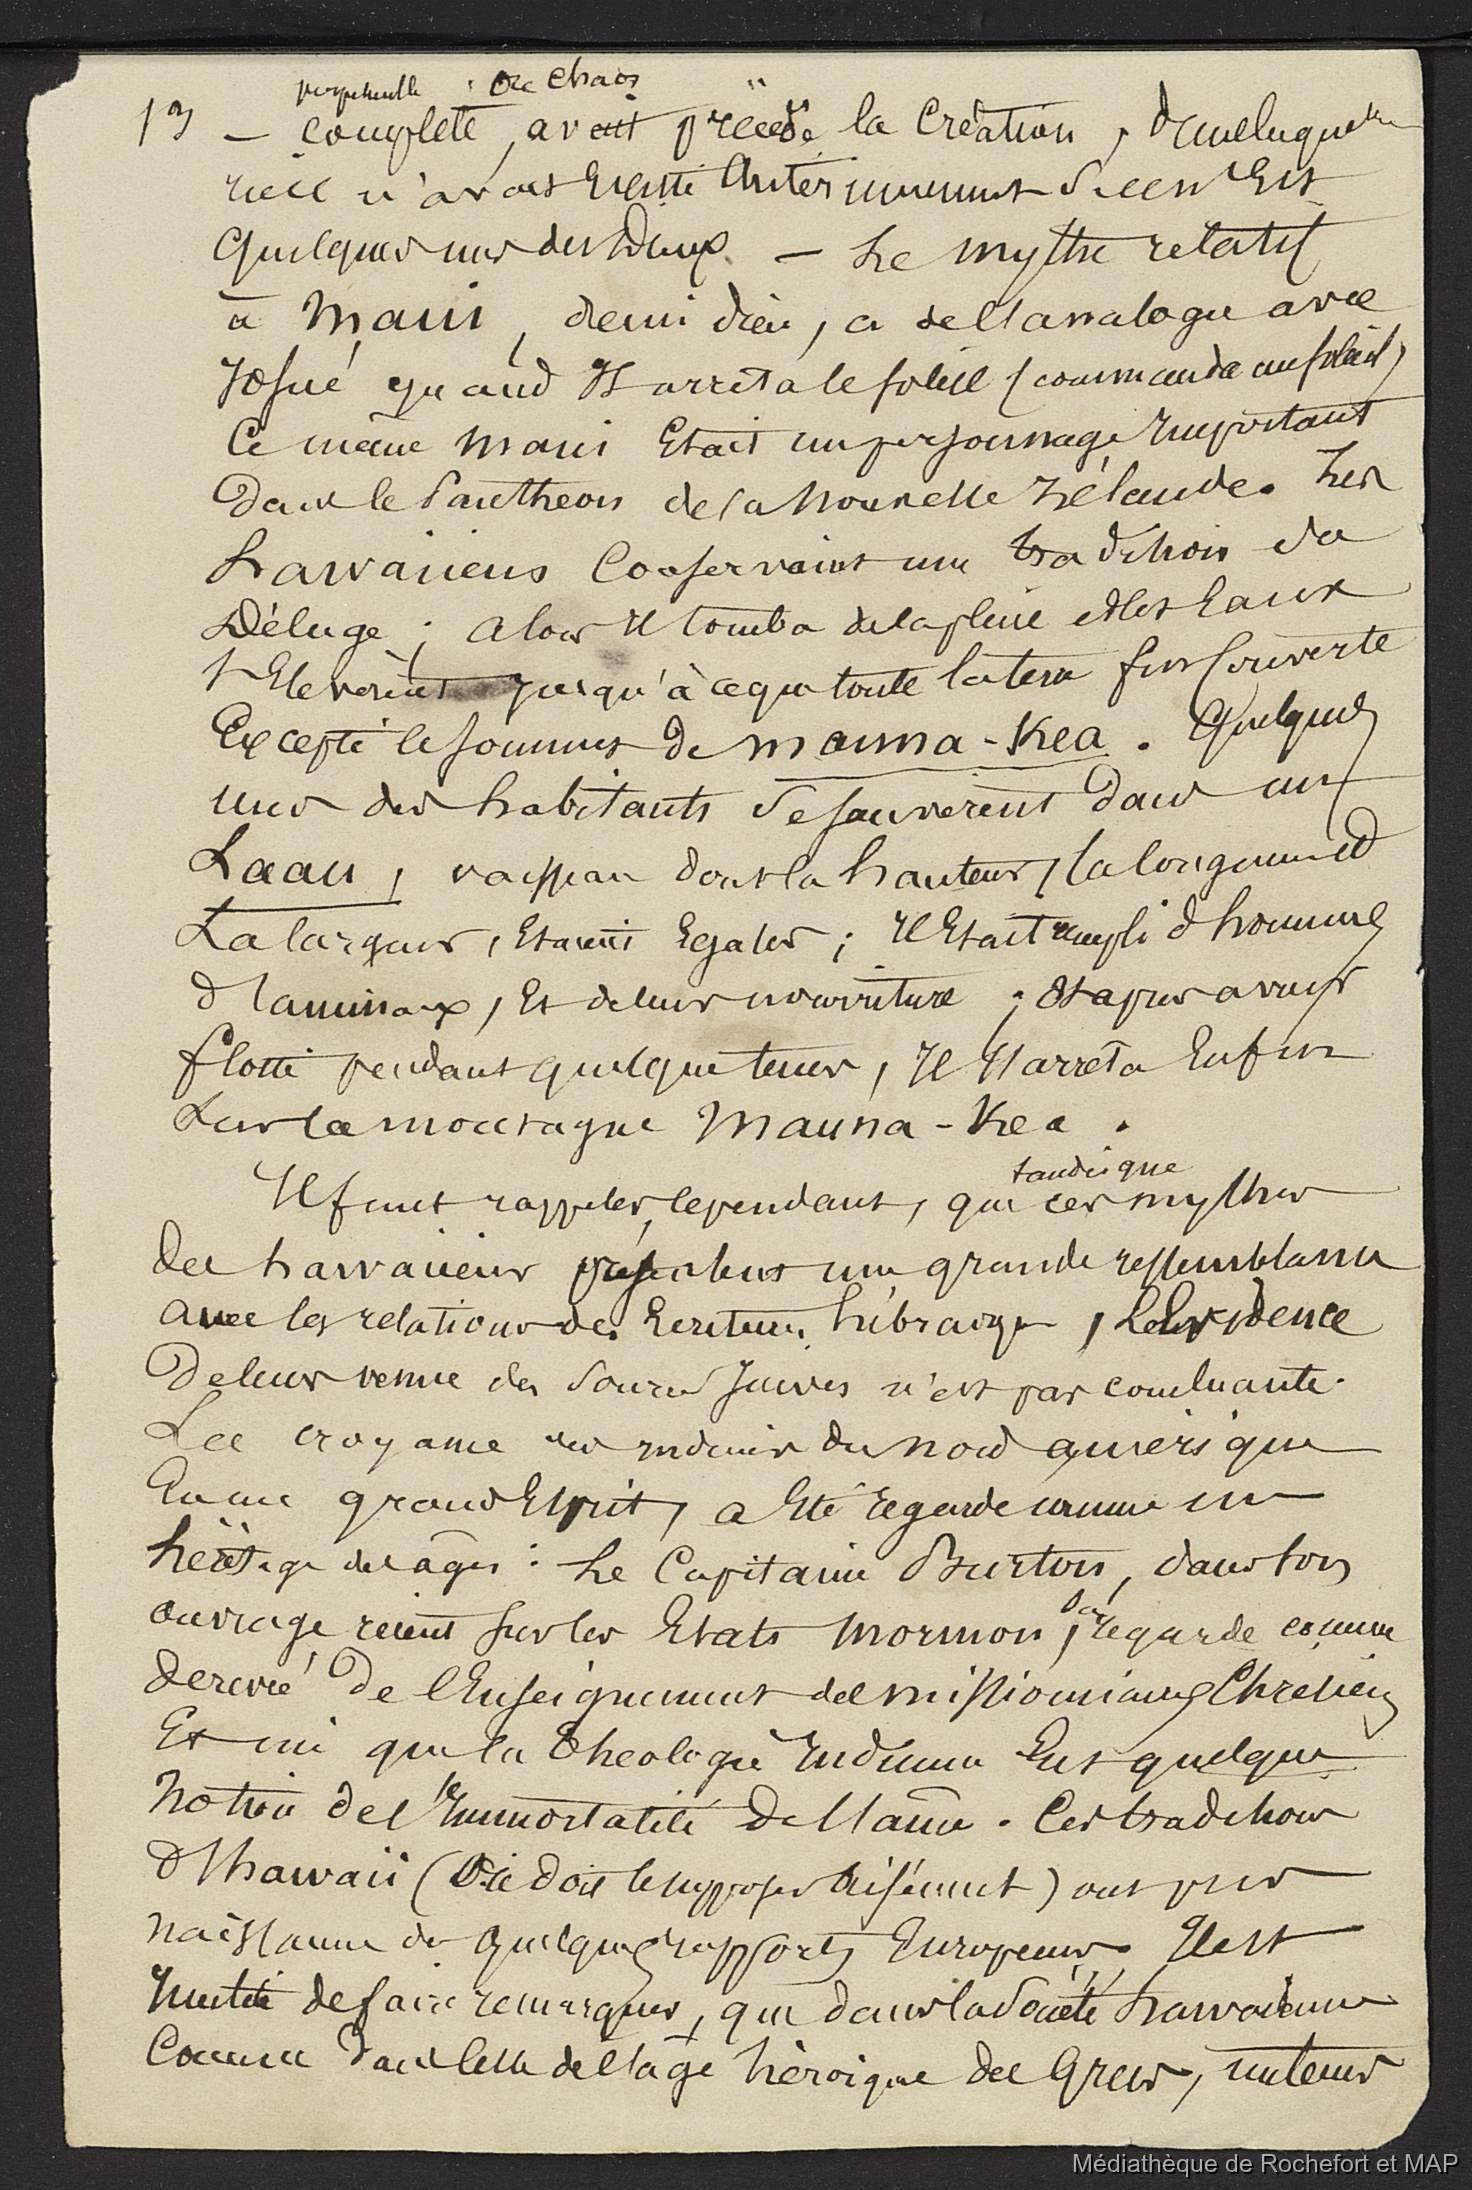 perpetuelle ou chaos
13 — complète, avait précédé la Création, & que lequel
rien n'avait Existé Antérieurement Si ce n'Est
Quelques uns des Dieux. — Le Mythe relatif
à Maui, demi dieu, a de l'annalogie avec
Josué quand Il arrêta le soleil (commanda au soleil)
Ce même Maui Etait un personnage Important
Dans le Panthéon de la Nouvelle Zélande. Les
hawaiiens Conservaient une tradition du
Déluge ; Alors Il tomba de la pluie et les Eaux
s'Elevèrent jusqu'à ce que toute la terre fut Couverte
Excepté le sommet de Mauna-Kea. Quelques
uns des habitants Se sauvèrent Dans un
Laau, vaisseau dont la hauteur, la longueur et
La largeur, Etaient Egales ; Il Etait rempli d'hommes
d'animaux, Et de leur nourriture ; Et après avoir
flotté pendant quelque tems, Il s'arrêta Enfin
Sur la montagne Mauna-Kea.
tandis que
Il faut rappeler, cependant, que ces mythes
des hawaiiens présentent une grande ressemblance
avec les relations des Ecritures hébraïques, L'Evidence
De leur venue des Sources Juives n'est pas concluante.
La croyance des indiens du nord amérique
En un grand Esprit, a Eté regardé comme un
héritage des âges : Le Capitaine Burton, dans son
ouvrage récent sur les Etats Mormon, la regarde comme
derivé De l'Enseignement des missionnaires Chretiens
Et nie que la Theologie Indienne Eut quelque
Notion de l'Immortalité De l'âme. Ces traditions
d'hawaii (On doit le supposer Aisément) ont pris
naissance de quelques rapports Européens. Il est
Inutile de faire remarquer, que dans la Société hawaienne
Comme dans celle de l'âge héroïque des Grecs, un tems
Médiathèque de Rochefort et MAP